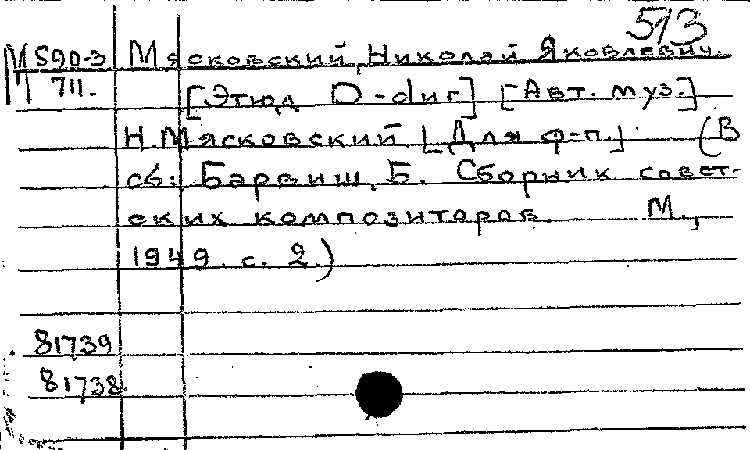 513
М 590-3 Мясковский, Николай Яковлевич.
711. [Этюд D-dur] [Авт. муз.]
Н. Мясковский [Для ф-п.] (В
сб: Барвиш, Б. Сборник совет-
ских композиторов. М.,
1949. с. 2.)
81739
81738